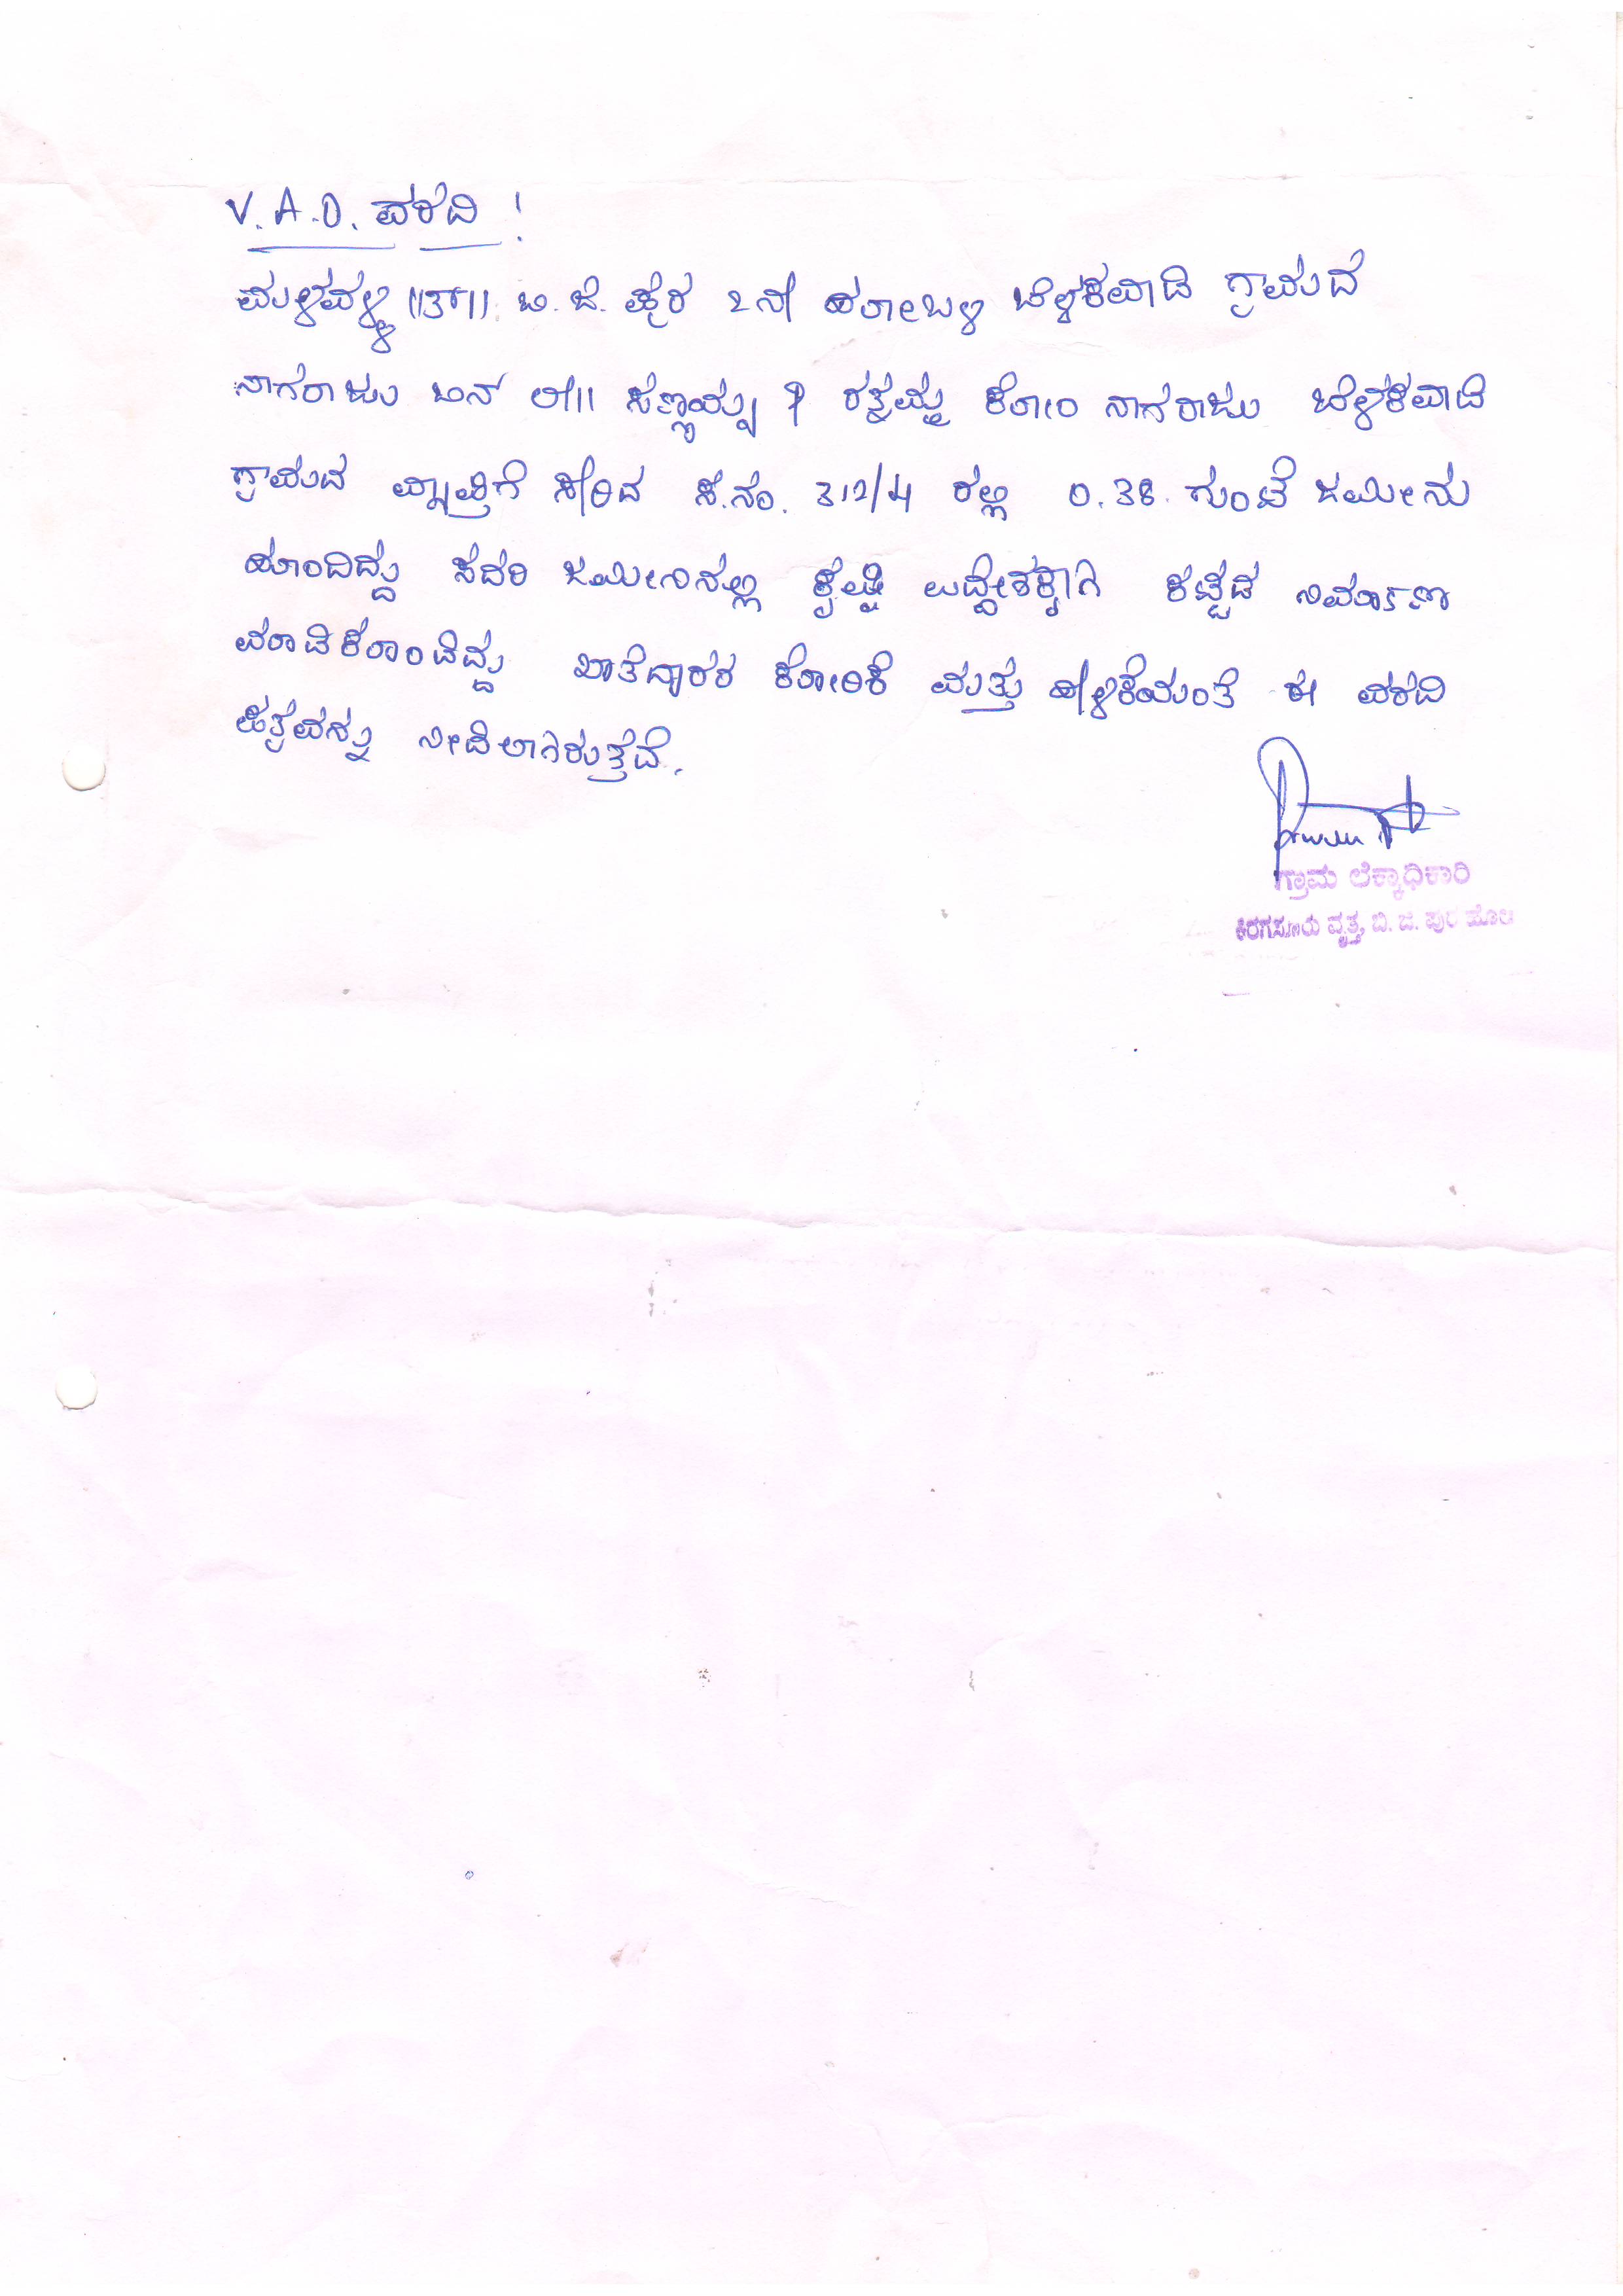 V.A.O. ವರದಿ !
ಮಳವಳ್ಳಿ ||ತಾ|| ಬಿ.ಜಿ. ಪುರ 2ನೇ ಹೋಬಳಿ ಬೆಳಕವಾಡಿ ಗ್ರಾಮದ
ನಾಗರಾಜು ಬಿನ್ ಲೇ|| ಸಣ್ಣಯ್ಯ ರತ್ನಮ್ಮ ಕೋಂ ನಾಗರಾಜು ಬೆಳಕವಾಡಿ
ಗ್ರಾಮದ ವ್ಯಾಪ್ತಿಗೆ ಸೇರಿದ ಸ.ನಂ. 312/4 ರಲ್ಲಿ 0.38 ಗುಂಟೆ ಜಮೀನು
ಹೊಂದಿದ್ದು ಸದರಿ ಜಮೀನಿನಲ್ಲಿ ಕೃಷಿ ಉದ್ದೇಶಕ್ಕಾಗಿ ಕಟ್ಟಡ ನಿರ್ಮಾಣ
ಮಾಡಿಕೊಂಡಿದ್ದು ಖಾತೆದಾರರ ಕೋರಿಕೆ ಮತ್ತು ಹೇಳಿಕೆಯಂತೆ ಈ ವರದಿ
ಪತ್ರವನ್ನು ನೀಡಿಲಾಗಿರುತ್ತದೆ.
ಗ್ರಾಮ ಲೆಕ್ಕಾಧಿಕಾರಿ
ಕಿರಗಸೂರು ವೃತ್ತ, ಬಿ. ಜಿ. ಪುರ ಹೋಬಳಿ